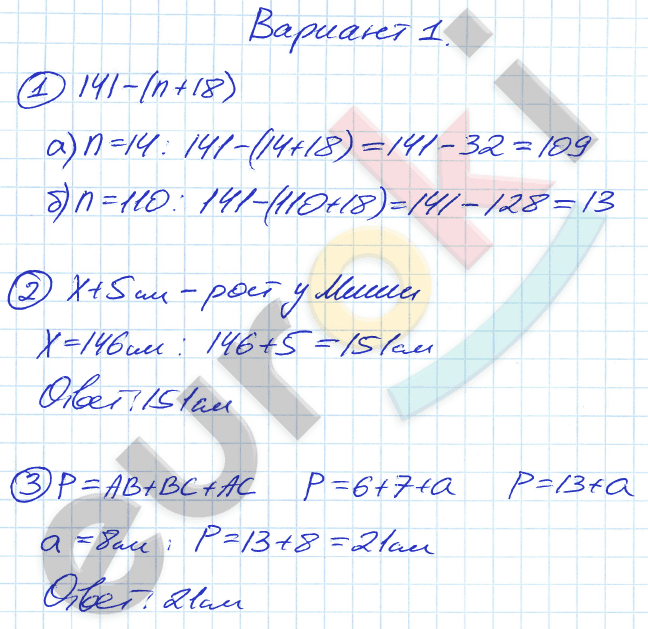 Вариант 1.
① 141-(n+18)
а) n=14: 141-(14+18)=141-32=109
б) n=110: 141-(110+18)=141-128=13
② x+5см - рост у Миши
x=146см: 146+5=151см
Ответ: 151см
③ P=AB+BC+AC P=6+7+a P=13+a
a=8см: P=13+8=21см
Ответ: 21см
euroki